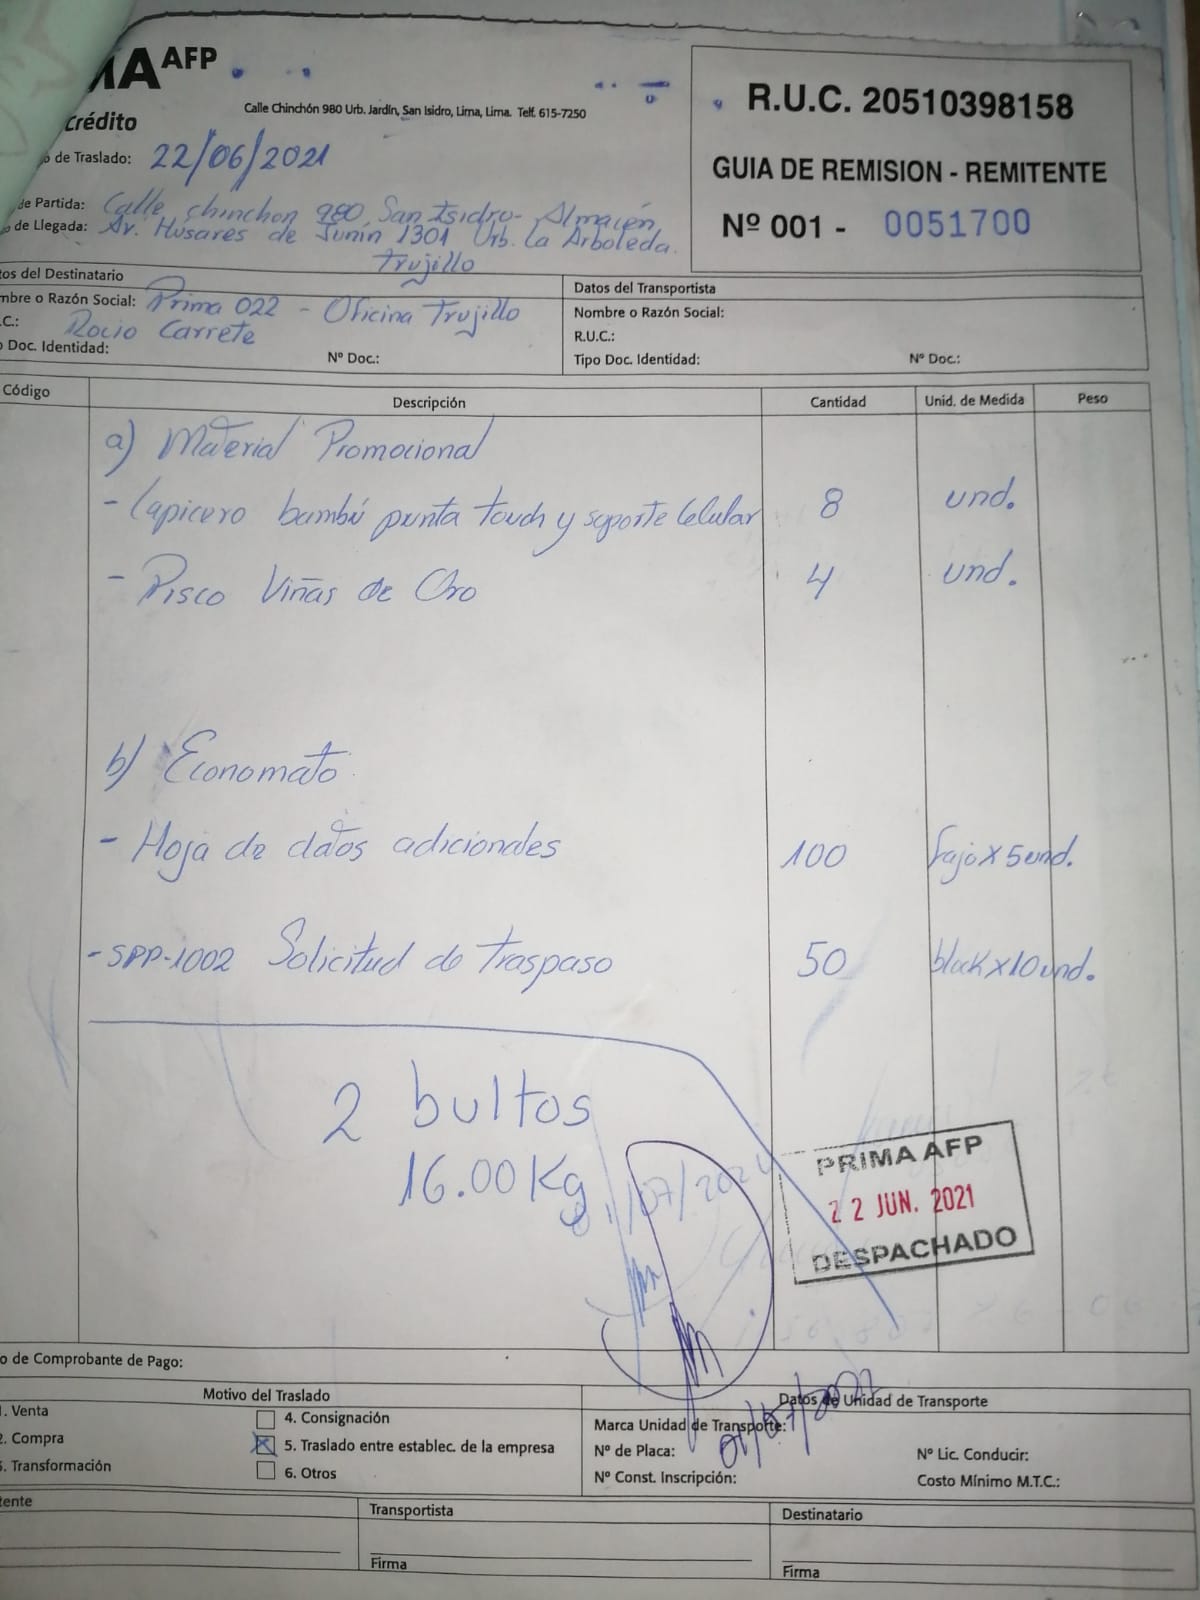 MA AFP
Crédito
Calle Chinchón 980 Urb. Jardín, San Isidro, Lima, Lima. Telf. 615-7250
R.U.C. 20510398158
GUIA DE REMISION - REMITENTE
Nº 001 - 0051700
de Traslado: 22/06/2021
de Partida: Calle chinchon 980, San Isidro - Almacén
de Llegada: Av. Husares de Junin 1301 Urb. La Arboleda.
Trujillo
tos del Destinatario
mbre o Razón Social: Prima 022 - Oficina Trujillo
.C.: Rocio Carrete
Doc. Identidad: Nº Doc.:
Datos del Transportista
Nombre o Razón Social:
R.U.C.:
Tipo Doc. Identidad: Nº Doc.:
Código Descripción Cantidad Unid. de Medida Peso
a) Material Promocional
- Lapicero bambú punta touch y soporte Celular 8 und.
- Pisco Viñas de Oro 4 und.
b) Economato
- Hoja de datos adicionales 100 fajo x 5und.
- SPP-1002 Solicitud de Traspaso 50 block x 10und.
2 bultos
16.00 Kg
PRIMA AFP
22 JUN. 2021
DESPACHADO
o de Comprobante de Pago:
Motivo del Traslado
1. Venta
2. Compra
3. Transformación
4. Consignación
5. Traslado entre establec. de la empresa
6. Otros
Datos de Unidad de Transporte
Marca Unidad de Transporte:
Nº de Placa: Nº Lic. Conducir:
Nº Const. Inscripción: Costo Mínimo M.T.C.:
tente
Transportista
Firma
Destinatario
Firma